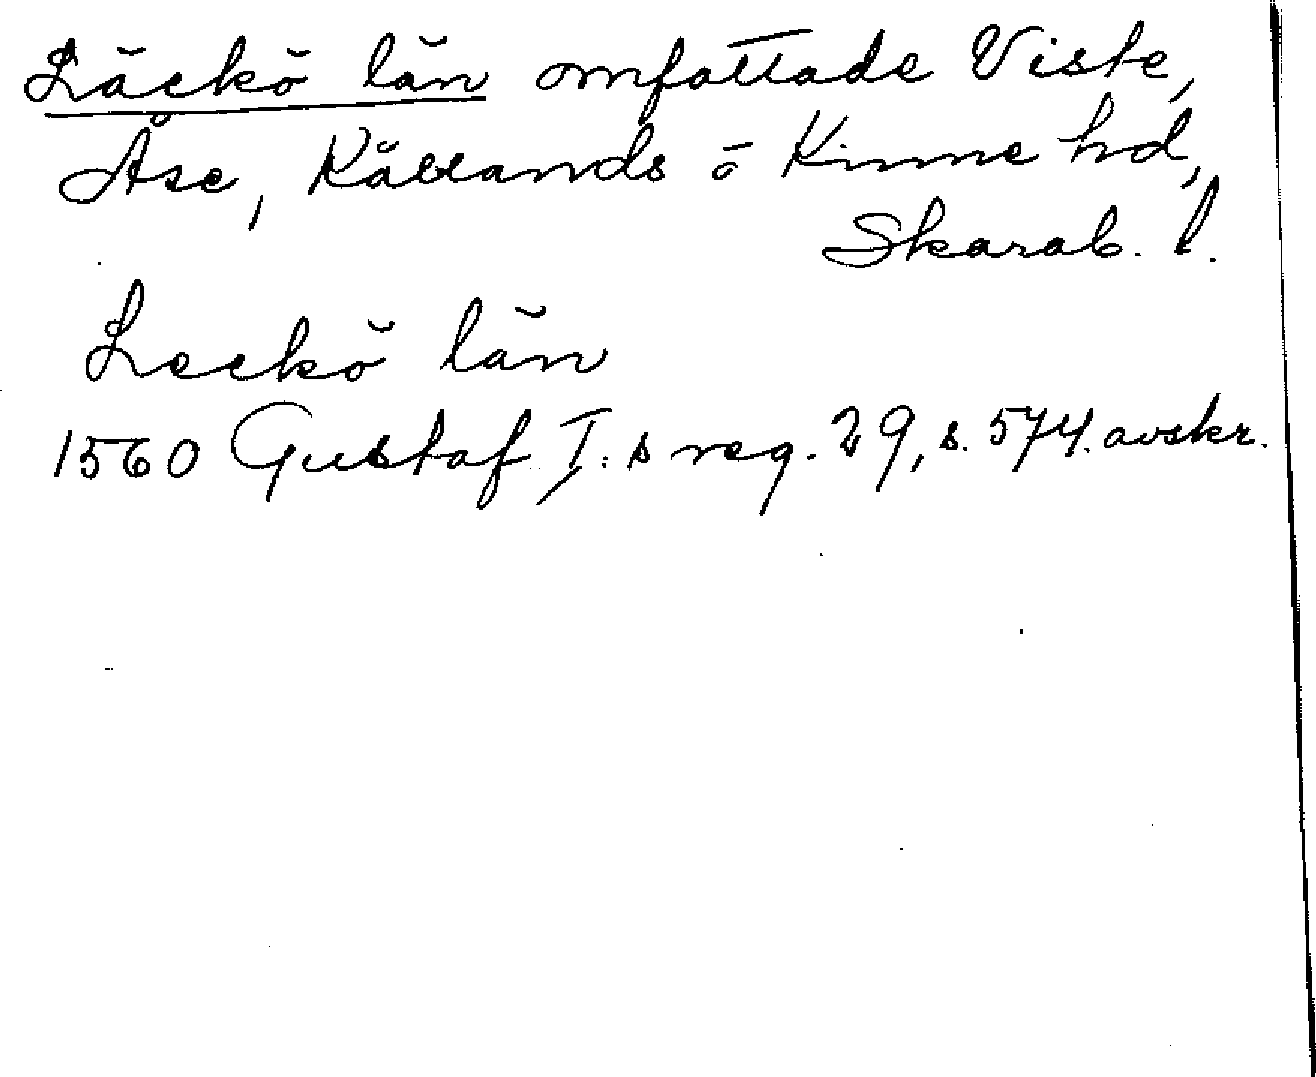 Läckö län omfattade Viste,
Åse, Kållands ō Kinne hd,
Skarab. l.
Leckö län
1560 Gustaf I:s reg. 29, s. 574. avskr.